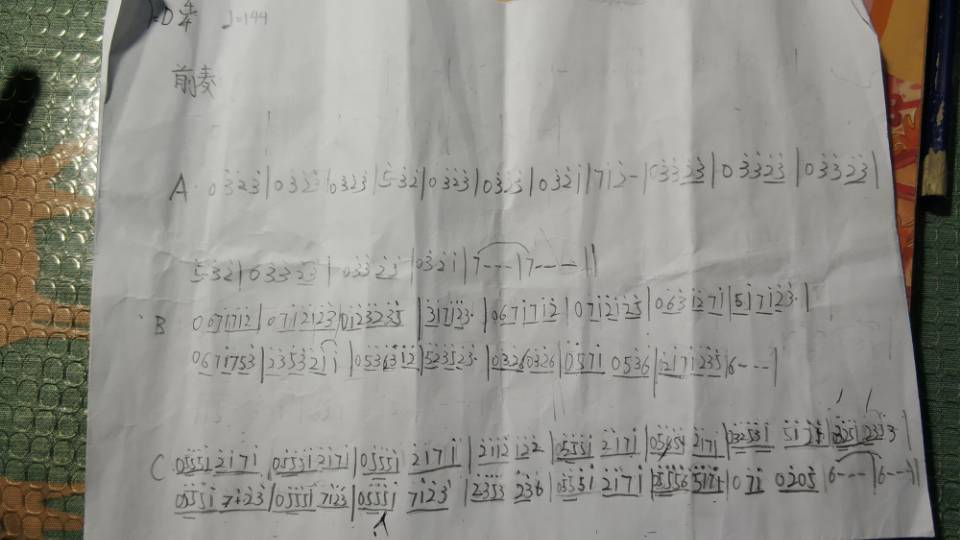 =D 4/4 ♩=144
前奏
A 0 3̇ 2̇ 3̇ | 0 3̇ 2̇ 3̇ | 0 3̇ 2̇ 3̇ | 5̇ 3̇ 2̇ | 0 3̇ 2̇ 3̇ | 0 3̇ 2̇ 3̇ | 0 3̇ 2̇ 1̇ | 7 1̇ 2̇ - | 0 3̇ 3̇ 2̇ 3̇ | 0 3̇ 3̇ 2̇ 3̇ | 0 3̇ 3̇ 2̇ 3̇ |
5̇ 3̇ 2̇ | 0 3̇ 3̇ 2̇ 3̇ | 0 3̇ 3̇ 2̇ 3̇ | 0 3̇ 2̇ 1̇ | 7 - - - | 7 - - - ||
B 0 0 7 1̇ 7 1̇ 2̇ | 0 7 1̇ 2̇ 1̇ 2̇ 3̇ | 0 1̇ 2̇ 3̇ 2̇ 3̇ 5̇ | 3̇ 1̇ 7 1̇ 2̇ 3̇ · | 0 6 7 1̇ 7 1̇ 2̇ | 0 7 1̇ 2̇ 1̇ 2̇ 5̇ | 0 6 3̇ 1̇ 2̇ 7 1̇ | 5 1̇ 7 1̇ 2̇ 3̇ · |
0 6 7 1̇ 7 5 3 | 2̇ 3̇ 5̇ 3̇ 2̇ 1̇ 1̇ | 0 5 3 6 3̇ 1̇ 2̇ | 5 2̇ 3̇ 5̇ 2̇ 3̇ · | 0 3 2 6 0 3 2 6 | 0 5 7 1̇ 0 5 3 6 | 1̇ 2̇ 1̇ 7 1̇ 2̇ 3̇ 5̇ | 6 - - - |
C 0 5 5 5 1̇ 2̇ 1̇ 7 1̇ | 0 5 5 3 1̇ 2̇ 1̇ 7 1̇ | 0 5 5 5 1̇ 2̇ 1̇ 7 1̇ | 2̇ 1̇ 1̇ 2̇ 1̇ 2̇ 2̇ | 0 5 5 5 1̇ 2̇ 1̇ 7 1̇ | 2̇ 1̇ 7 1̇ |
0 5 5 5 1̇ 7 1̇ 2̇ 3̇ | 0 5 5 5 1̇ 7 1̇ 2̇ 3̇ | 0 5 5 5 1̇ 7 1̇ 2̇ 3̇ | 2̇ 3̇ 5̇ 3̇ 2̇ 3̇ 6 | 0 5 5 5 1̇ 2̇ 1̇ 7 1̇ | 0 7 1̇ 0 2̇ 0 5 | 6 - - - | 6 - - - ||